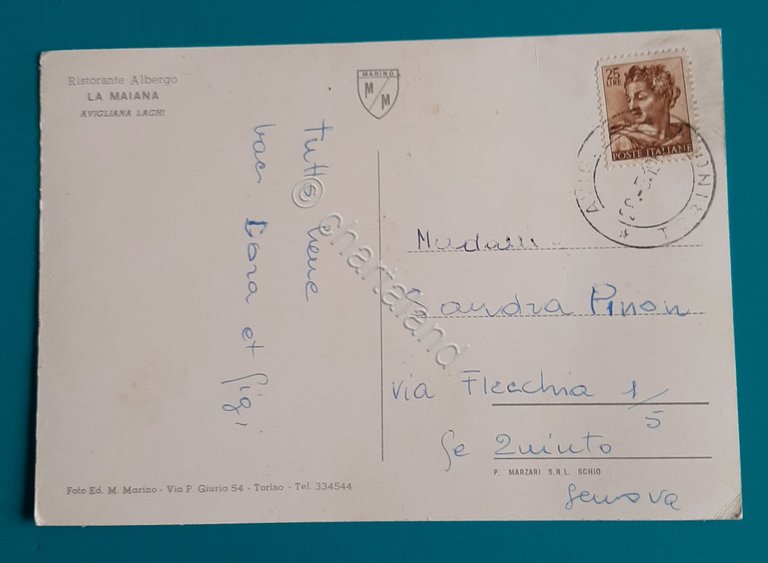 Ristorante Albergo
LA MAIANA
AVIGLIANA LAGHI
MARINO
M M
25
LIRE
POSTE ITALIANE
TORINO
tutto bene
baci Dora et Gigi
© chartaland
Madame
Sandra Pinon
via Flecchia 1/5
Ge Quinto
P. MARZARI S.R.L. SCHIO
Genova
Foto Ed. M. Marino - Via P. Giuria 54 - Torino - Tel. 334544